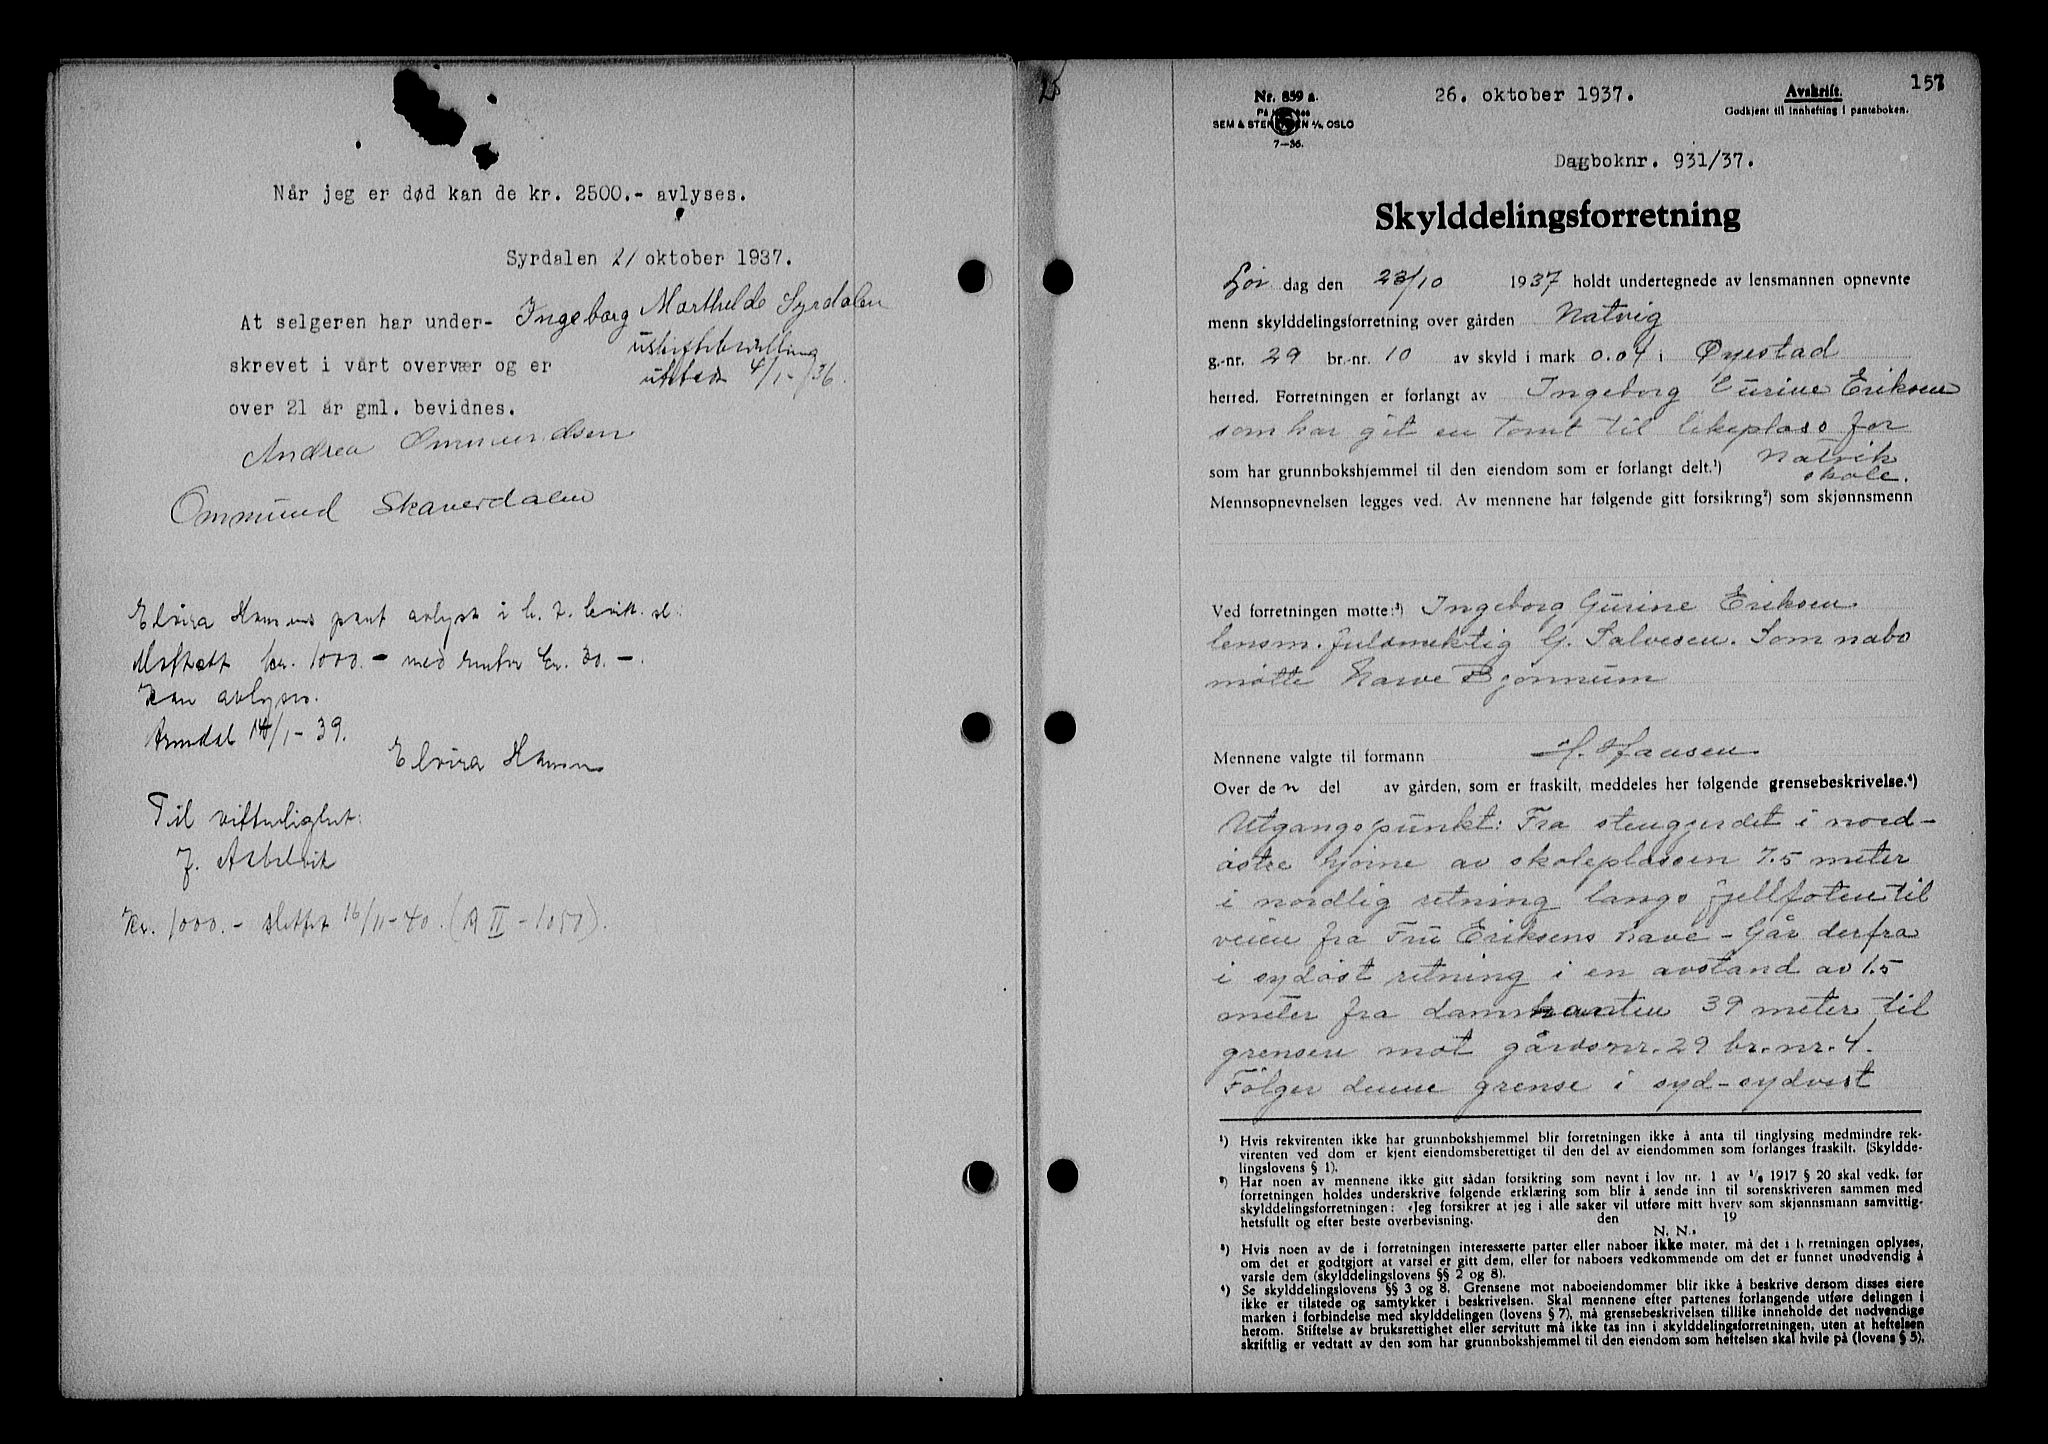 Når jeg er død kan de kr. 2500.- avlyses.
Syrdalen 21 oktober 1937.
At selgeren har under-
Ingeborg Marthilde Syrdalen
skrevet i vårt overvær og er
uskiftebevilling
utsted 4/1-36.
over 21 år gml. bevidnes.
Andrea Ommundsen
Ommund Skaverdalen
Elvira Hansens pant avlyst i h. t. kvitt. sl:
kr. 1000.- med renter kr. 30.-.
kan avlyses.
Arendal 14/1-39.
Elvira Hansen
Til vitterlighet:
J. Asbelvik
Kr. 1000.- slettet 16/11-40. (A II - 1050).
Nr. 859 a.
SEM & STENERSEN A/S, OSLO
7-36.
26. oktober 1937.
Avskrift.
Godkjent til innhefting i panteboken.
157
Dagboknr. 931/37.
Skylddelingsforretning
Lør dag den 23/10 1937 holdt undertegnede av lensmannen opnevnte
menn skylddelingsforretning over gården Natvig
g.-nr. 29 br.-nr. 10 av skyld i mark 0.04 i Øyestad
herred. Forretningen er forlangt av Ingeborg Gurine Eriksen
som har git en tomt til lekeplass for
Natvik
skole.
som har grunnbokshjemmel til den eiendom som er forlangt delt.¹)
Mennsopnevnelsen legges ved. Av mennene har følgende gitt forsikring²) som skjønnsmenn
Ved forretningen møtte:³) Ingeborg Gurine Eriksen
lensm. fuldmektig G. Salvesen. Som nabo
møtte Narve Bjønnum
Mennene valgte til formann H. Hansen
Over den del av gården, som er fraskilt, meddeles her følgende grensebeskrivelse.⁴)
Utgangspunkt: Fra stengjerdet i nord-
østre hjørne av skoleplassen 7.5 meter
i nordlig retning langs fjellfoten til
veien fra Fru Eriksens have - Går derfra
i sydøst retning i en avstand av 1.5
meter fra damkanten 39 meter til
grensen mot gårdsnr. 29 br.-nr. 4.
Følger denne grense i syd-sydvest
¹) Hvis rekvirenten ikke har grunnbokshjemmel blir forretningen ikke å anta til tinglysing medmindre rek-
virenten ved dom er kjent eiendomsberettiget til den del av eiendommen som forlanges fraskilt. (Skyldde-
lingslovens § 1).
²) Har noen av mennene ikke gitt sådan forsikring som nevnt i lov nr. 1 av 1/6 1917 § 20 skal vedk. før
forretningen holdes underskrive følgende erklæring som blir å sende inn til sorenskriveren sammen med
skylddelingsforretningen: «Jeg forsikrer at jeg i alle saker vil utføre mitt hverv som skjønnsmann samvittig-
hetsfullt og efter beste overbevisning. den 19
N. N.»
³) Hvis noen av de i forretningen interesserte parter eller naboer ikke møter, må det i forretningen oplyses,
om det er godtgjort at varsel er gitt dem, eller for naboers vedkommende om det er funnet unødvendig å
varsle dem (skylddelingslovens §§ 2 og 8).
⁴) Se skylddelingslovens §§ 3 og 8. Grensene mot naboeiendommer blir ikke å beskrive dersom disses eiere
ikke er tilstede og samtykker i beskrivelsen. Skal mennene efter partenes forlangende utføre delingen i
marken i forbindelse med skylddelingen (lovens § 7), må grensebeskrivelsen tillike inneholde det nødvendige
herom. Stiftelse av bruksrettighet eller servitutt må ikke tas inn i skylddelingsforretningen, uten at heftelsen
skriftlig er vedtatt av den som har grunnbokshjemmel til den eiendom som heftelsen skal hvile på (lovens § 5).